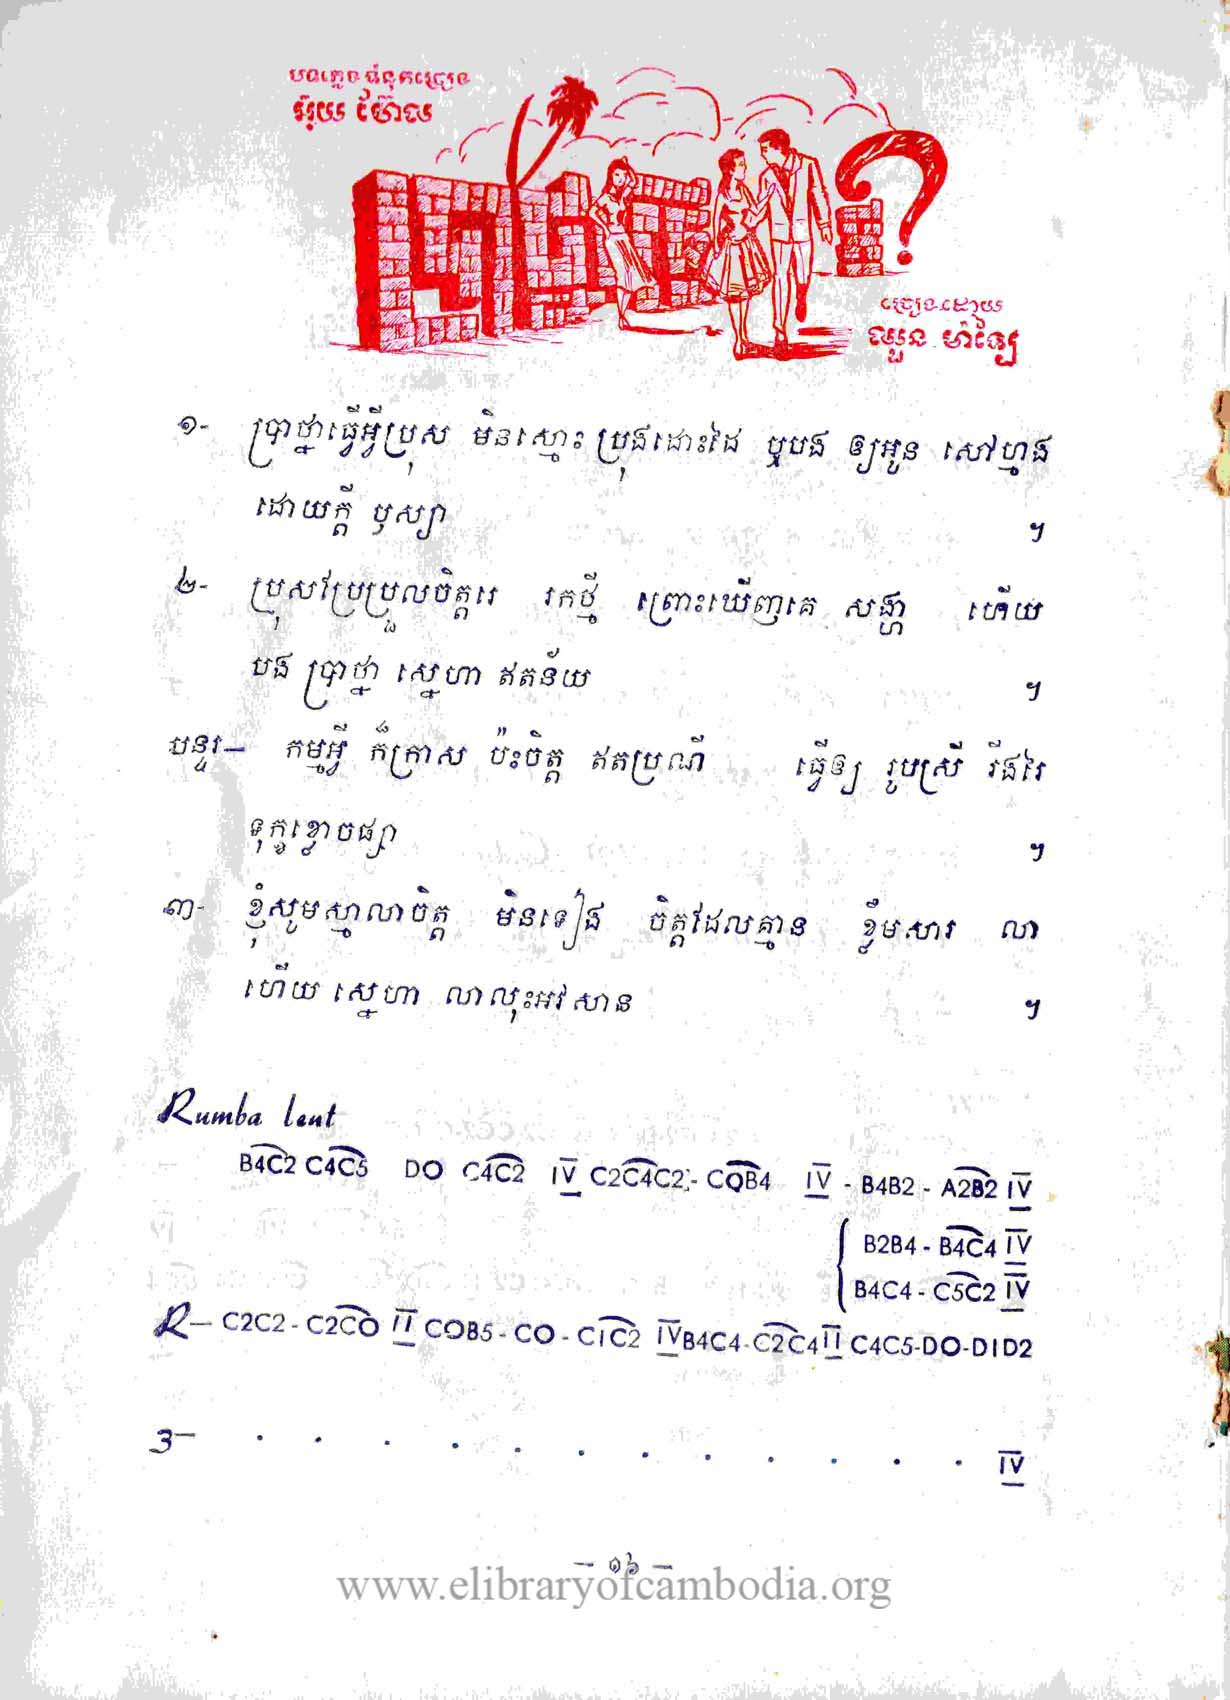 បទភ្លេង ទំនុកច្រៀង
អ៊ុយ ហ៊ែល
?
ច្រៀងដោយ
ឈួន ម៉ាឡៃ
១- ប្រាថ្នាធ្វើអ្វីប្រុស មិនស្មោះ ប្រុងដោះដៃ ឬបង ឲ្យអូន សៅហ្មង
ដោយក្តី ឫស្យា ។
២- ប្រុសប្រែប្រួលចិត្តរេ រកថ្មី ព្រោះឃើញគេ សង្ហា ហើយ
បង ប្រាថ្នា ស្នេហា ឥតន័យ ។
បន្ទរ— កម្មអ្វី ក៏ក្រាស ប៉ះចិត្ត ឥតប្រណី ធ្វើឲ្យ រូបស្រី រីងរៃ
ទុក្ខខ្លោចផ្សា ។
៣- ខ្ញុំសូមស្មាលាចិត្ត មិនទៀង ចិត្តដែលគ្មាន ខ្លឹមសារ លា
ហើយ ស្នេហា លាលុះអវសាន ។
Rumba lent
B4C2 C4C5 DO C4C2 IV C2C4C2 - COB4 IV - B4B2 - A2B2 IV
B2B4 - B4C4 IV
B4C4 - C5C2 IV
R— C2C2 - C2CO II COB5 - CO - C1C2 IV B4C4 - C2C4 II C4C5-DO-D1D2
3— . . . . . . . . . . . . IV
— ១៦ —
www.elibraryofcambodia.org